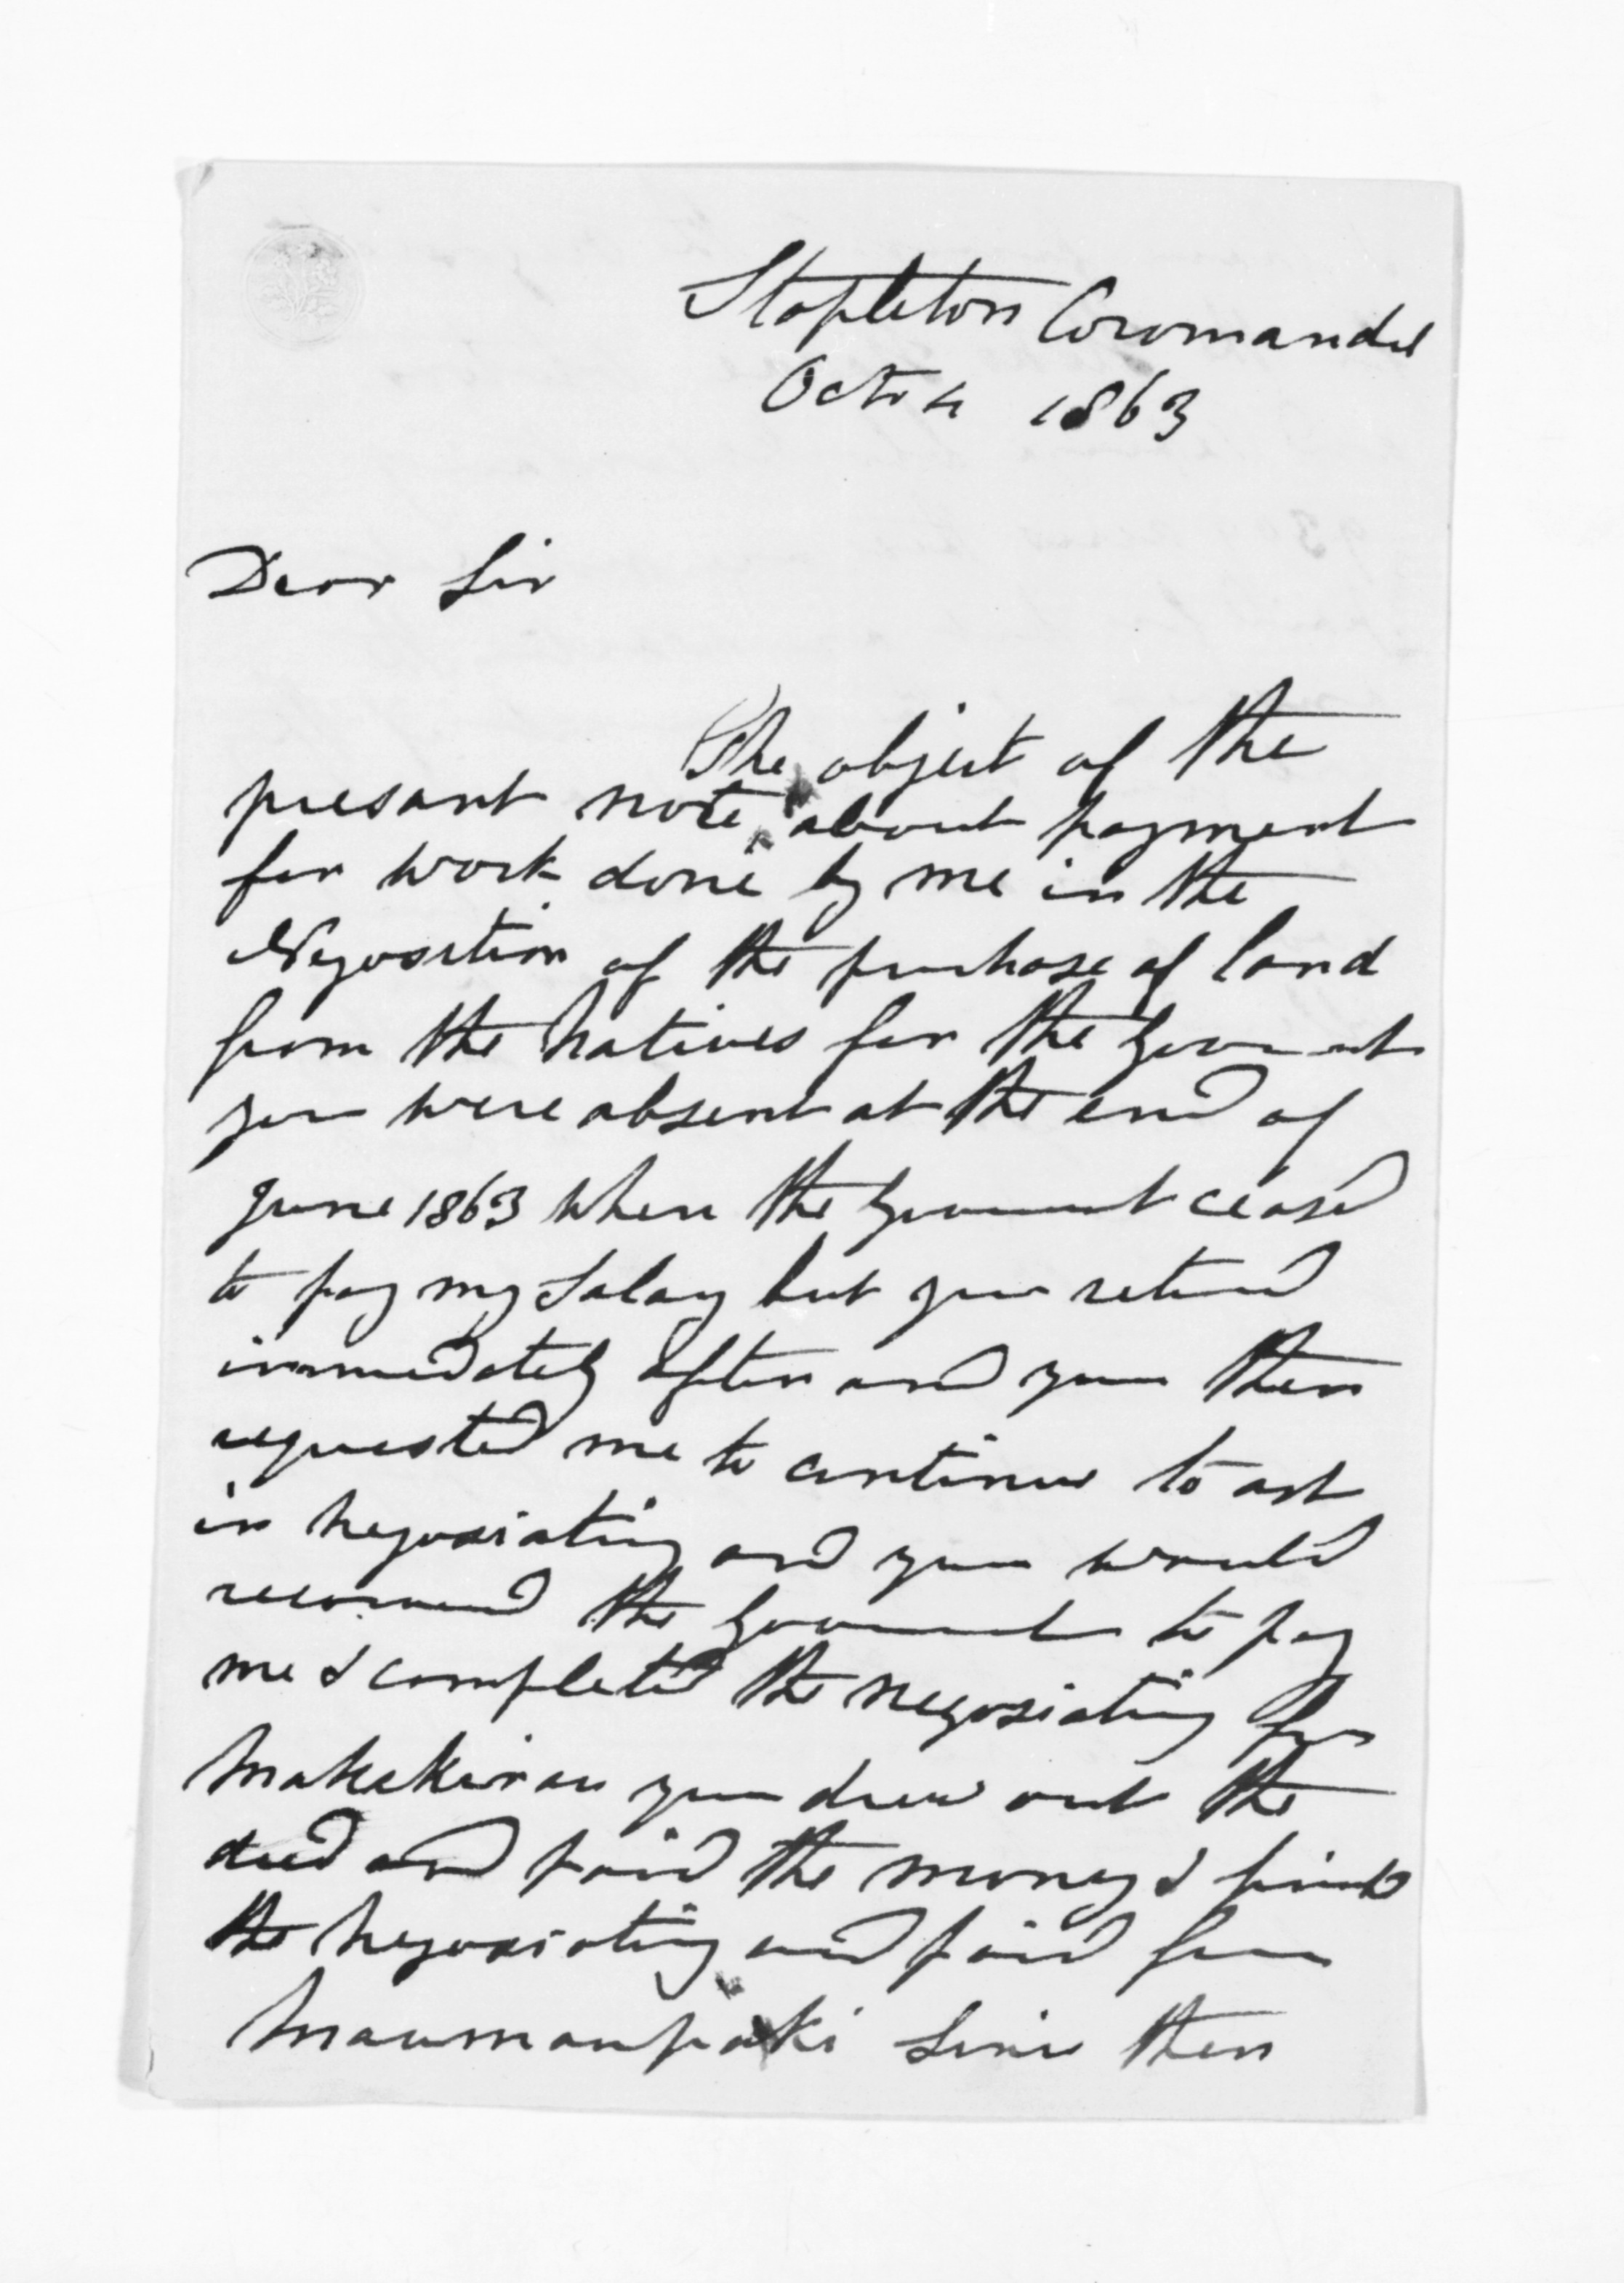 Stapleton Coromandel
Octr 4 1863
Dear Sir
The object of the
presant note about payment
for work done by me in the
Negosition of the purchase of land
from the Natives for the Goverment
you were absent at the end of
June 1863 when the Goverment ceased
to pay my Salary but you returned
immediately after and you then
requested me to continue to act
in Negosiating and you would
recommend the Goverment to pay
me I completed the negosiating for
you drew out the
deed and paid the money I
the Negosiating and paid for
Since then